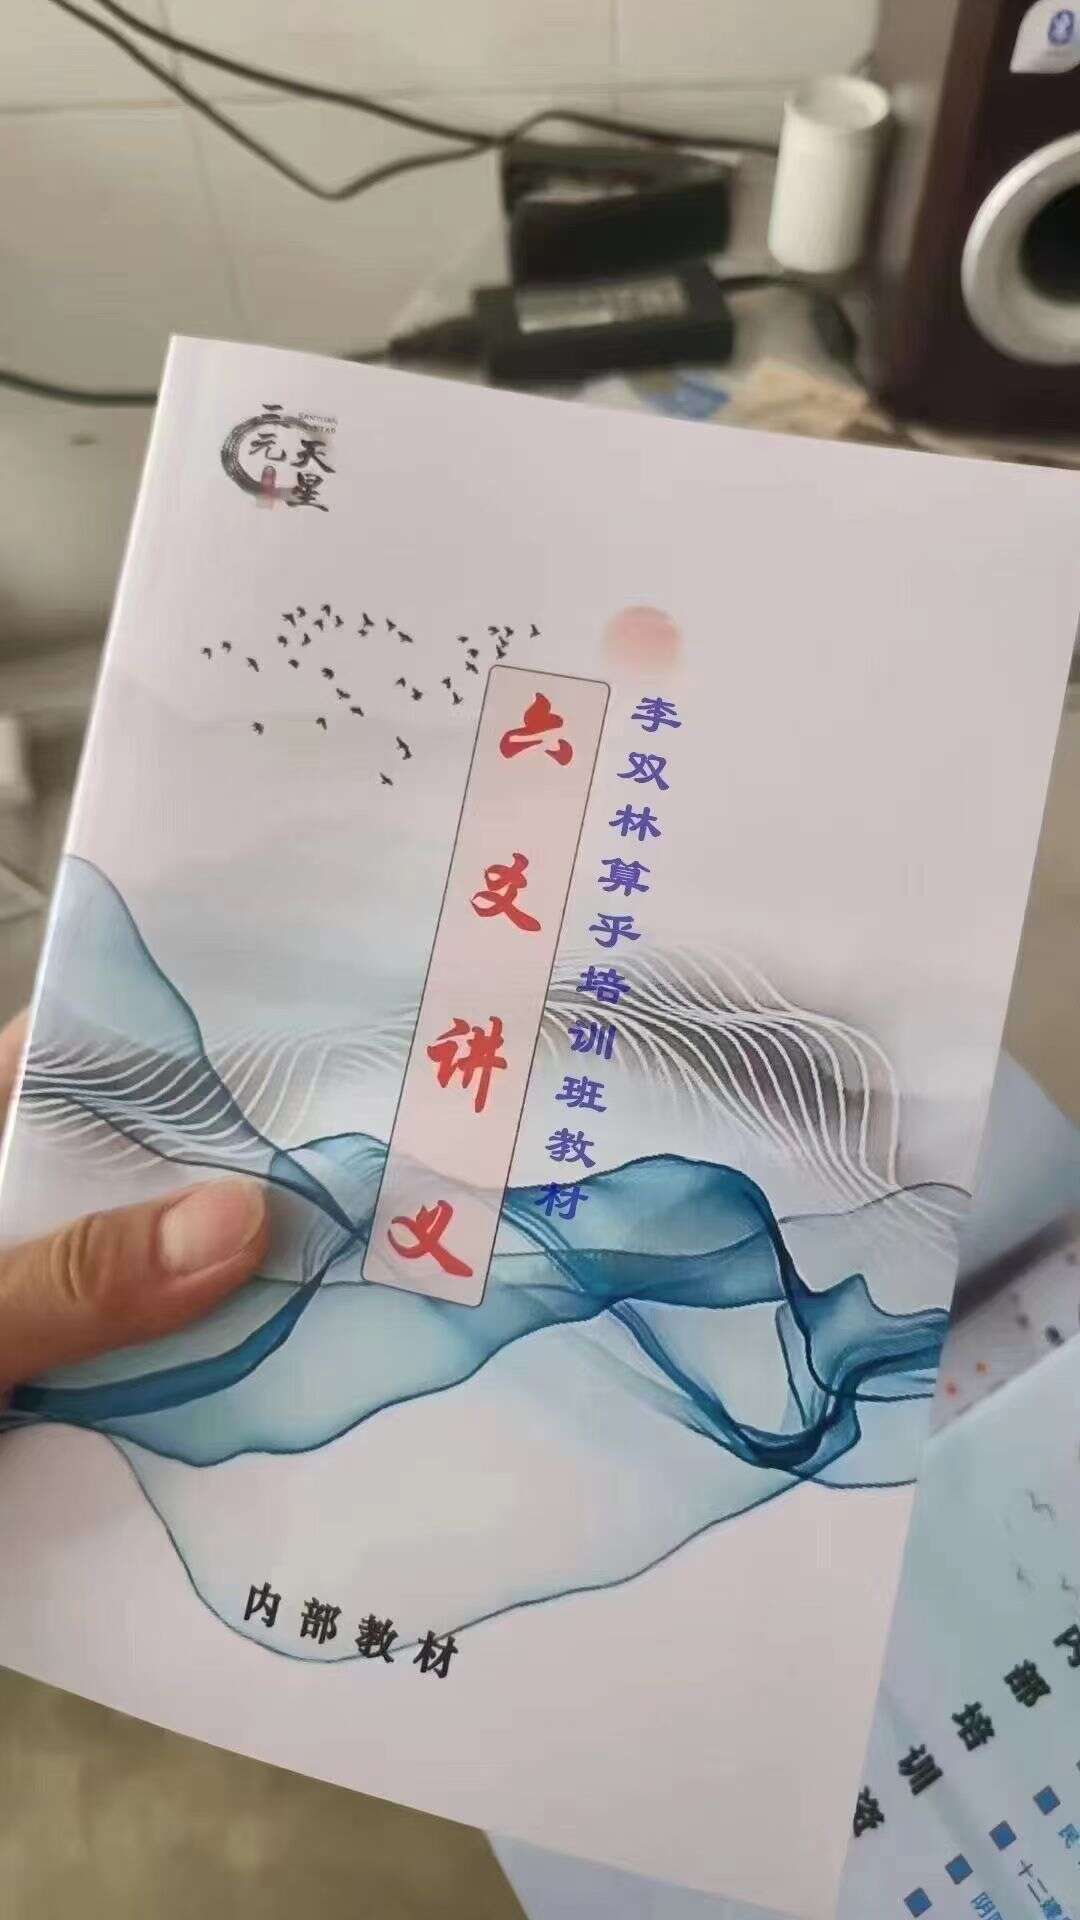 三元天星
六爻讲义
李双林算乎培训班教材
内部教材
内部培训班
十二建
阴阳
民